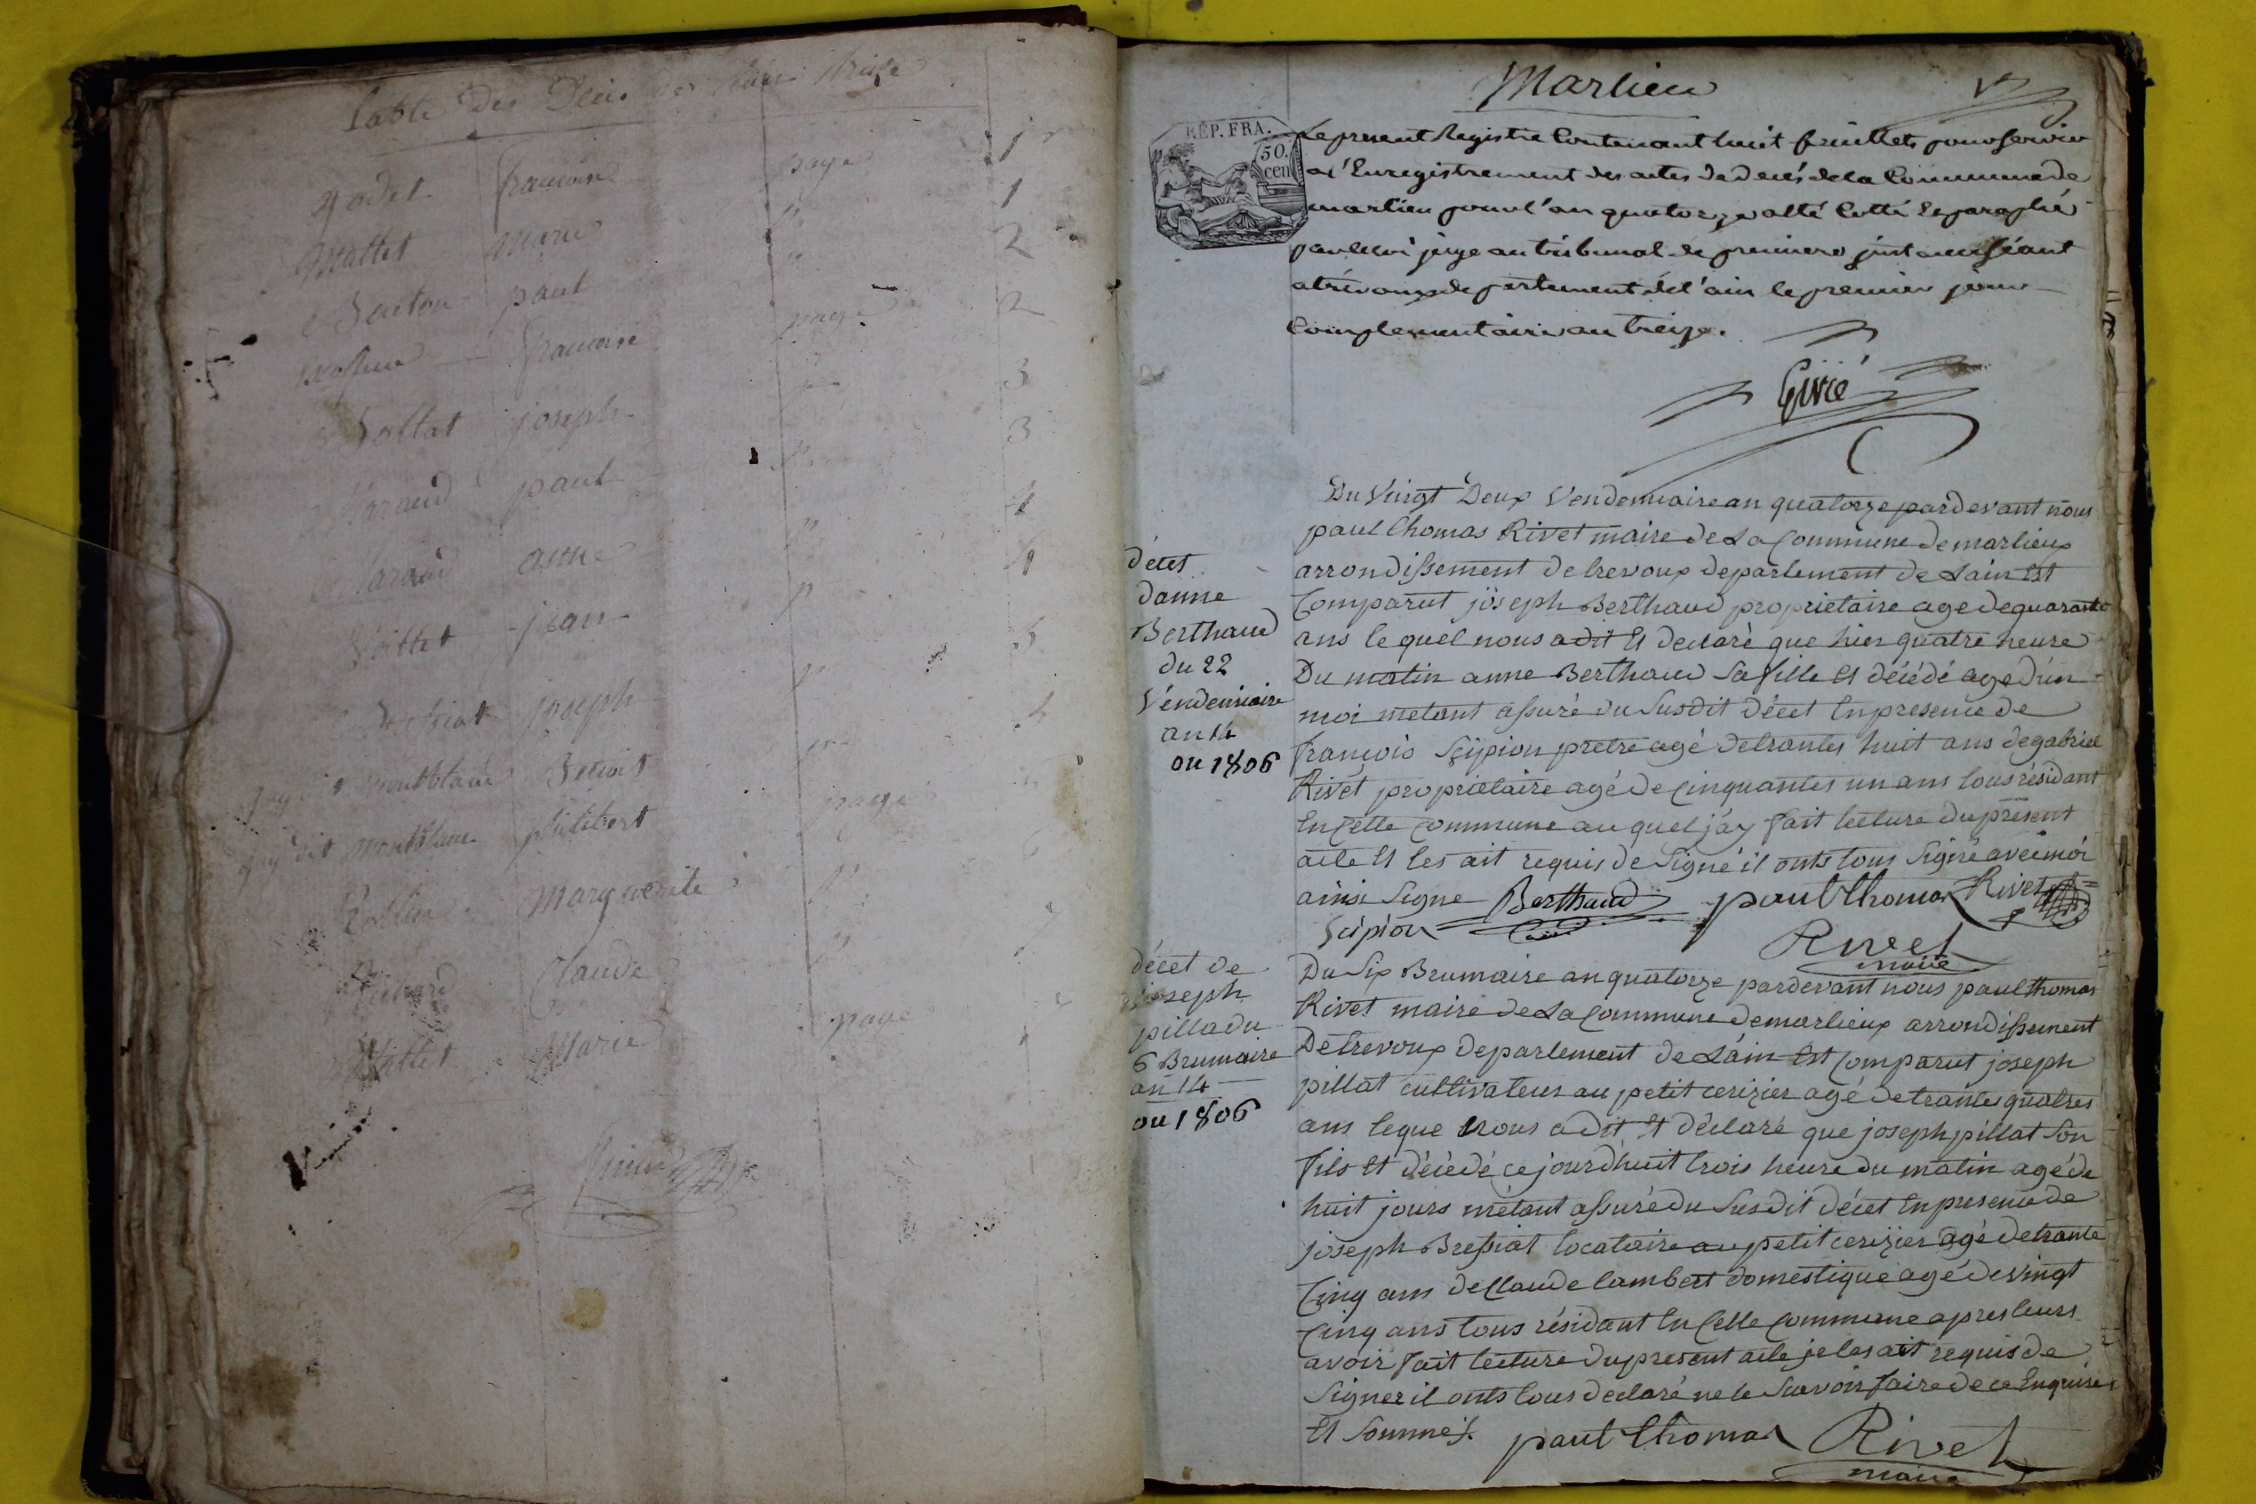 Table Des Décès
godet françoise page 1
mattet marie " 1
paul " 2
françoise page 2
joseph 3
paul " 3
anne " 4
jean " 4
joseph "
Benoit
guy dit montblanc philibert page
marguerite "
Claude "
mattet Marie page
Marlieu
REP. FRA.
50. cen
Le present Registre Contenant huit feuillets pour servir
a l'Enregistrement des actes de decés de la Commune de
marlieu pour l'an quatorze a été Cotté & paraphé
par moi juge au tribunal de premiere instance séant
a trévoux departement de l'ain le premier jour
Complementaire an treize.
Du Vingt Deux Vendemiaire an quatorze pardevant nous
paul thomas Rivet maire de La Commune de marlieux
arrondissement de trevoux departement de Lain Est
Comparut joseph Berthaud proprietaire age de quarante
ans le quel nous a dit Et declaré que hier quatre heure
Du matin anne Berthaud Sa fille Et décédé age d'un
moi métant assuré du Susdit décet En presence de
françois Scipion pretre agé de trantes huit ans de gabriel
Rivet proprietaire agé de Cinquantes un ans tous résidant
En Cette Commune au quel j'ay fait lecture du present
acte Et les ait requis de Signé il onts tous Signé avec moi
ainsi Signe Berthaud paul thomas Rivet
Scipion
Rivet
maire
décet
danne
Berthaud
du 22
Véndemiaire
an 14
ou 1806
Du Six Brumaire an quatorze pardevant nous paul thomas
Rivet maire de La Commune de marlieux arrondissement
De trevoux departement de Láin Est Comparut joseph
pillat cultivateur au petit cerizier agé de trantes quatres
ans leque Nous a dit Et déclaré que joseph pillat Son
fils Et décédé ce jourdhuit trois heure du matin agé de
huit jours métant assuré du Susdit décet En presence de
joseph Bressiat locataire au petit cerizier agé de trante
Cinq ans de Claude lambert domestique agé de vingt
Cinq ans tous résidant En Cette Commune apres leurs
avoir fait lecture du present acte je les ait requis de
Signer il onts tous declaré ne le Savoir faire de ce Enquises
Et Sommés. paul thomas Rivet
maire
décet de
joseph
pilla du
6 Brumaire
an 14
ou 1806